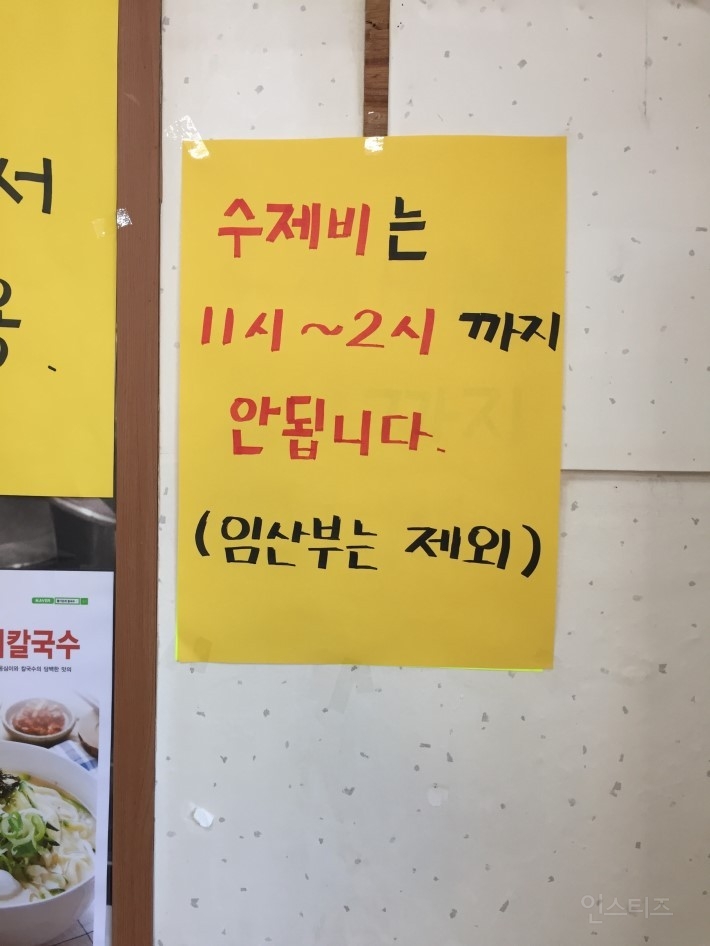 서
용.
수제비는
11시~2시 까지
안됩니다.
(임산부는 제외)
칼국수
인스티즈